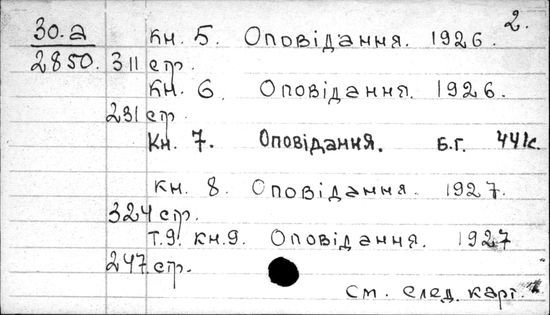 2.
30.а кн. 5. Оповідання. 1926.
2850. 311 стр.
кн. 6. Оповідання. 1926.
231 стр.
кн. 7. Оповідання. Б.г. 441с.
кн. 8. Оповідання. 1927.
324 стр.
т.9. кн.9. Оповідання. 1927
247 стр.
см. след. карт.